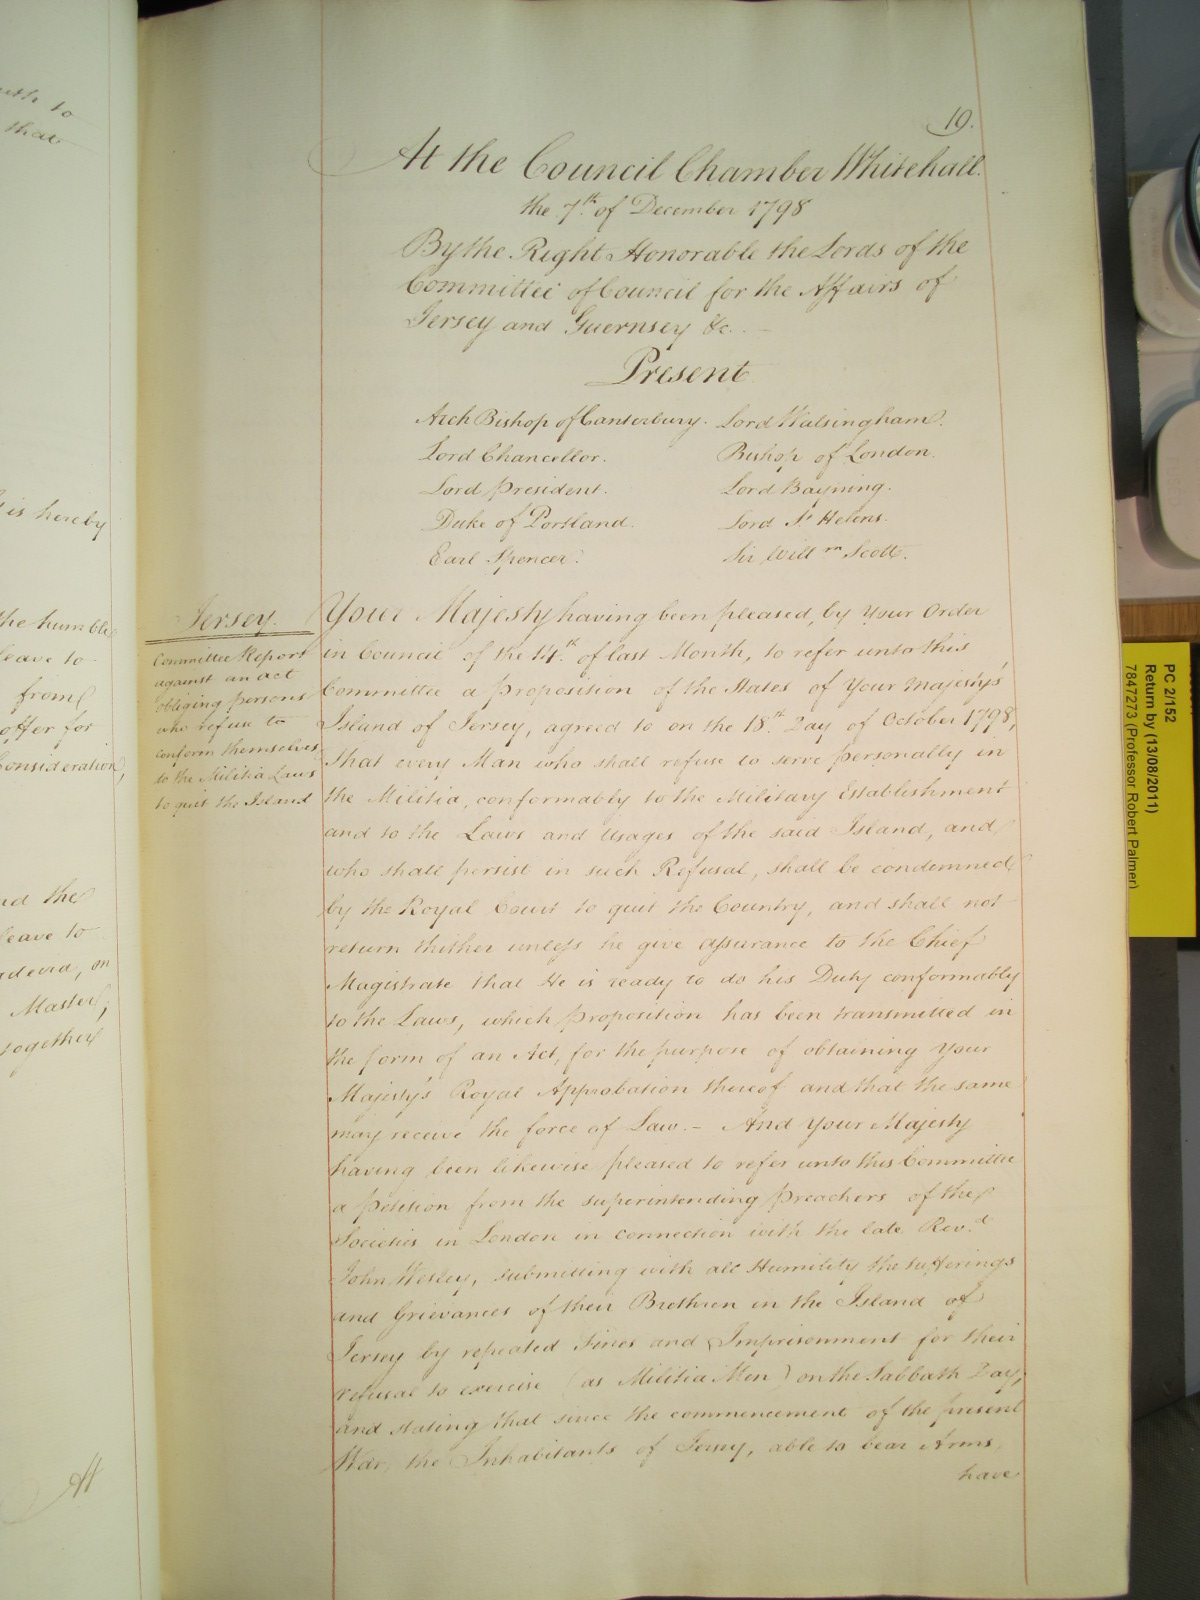 uth to
that
is hereby
the humble
leave to
from
offer for
Consideration,
nd the
leave to
on
Master,
together
At
19.
At the Council Chamber Whitehall.
the 7th of December 1798
By the Right Honorable the Lords of the
Committee of Council for the Affairs of
Jersey and Guernsey &c.
Present
Arch Bishop of Canterbury. Lord Walsingham.
Lord Chancellor. Bishop of London.
Lord President. Lord Bayning.
Duke of Portland. Lord St Helens.
Earl Spencer. Sir Willm Scott.
Jersey.
Committee Report
against an act
obliging persons
who refuse to
conform themselves
to the Militia Laws
to quit the Island
Your Majesty having been pleased, by Your Order
in Council of the 14th of last Month, to refer unto this
Committee a Proposition of the States of Your Majesty's
Island of Jersey, agreed to on the 18th Day of October 1798,
that every Man who shall refuse to serve personally in
the Militia, conformably to the Military Establishment
and to the Laws and Usages of the said Island, and
who shall persist in such Refusal, shall be condemned
by the Royal Court to quit the Country, and shall not
return thither unless he give assurance to the Chief
Magistrate that He is ready to do his Duty conformably
to the Laws, which Proposition has been transmitted in
the form of an Act, for the purpose of obtaining Your
Majesty's Royal Approbation thereof and that the same
may receive the force of Law. - And Your Majesty
having been likewise pleased to refer unto this Committee
a Petition from the superintending Preachers of the
Societies in London in connection with the late Revd
John Wesley, submitting with all Humility the sufferings
and Grievances of their Brethren in the Island of
Jersey by repeated Fines and Imprisonment for their
refusal to exercise (as Militia Men) on the Sabbath Day,
and stating that since the commencement of the present
War, the Inhabitants of Jersey, able to bear Arms,
have
PC 2/152
Return by (13/08/2011)
7847273 (Professor Robert Palmer)